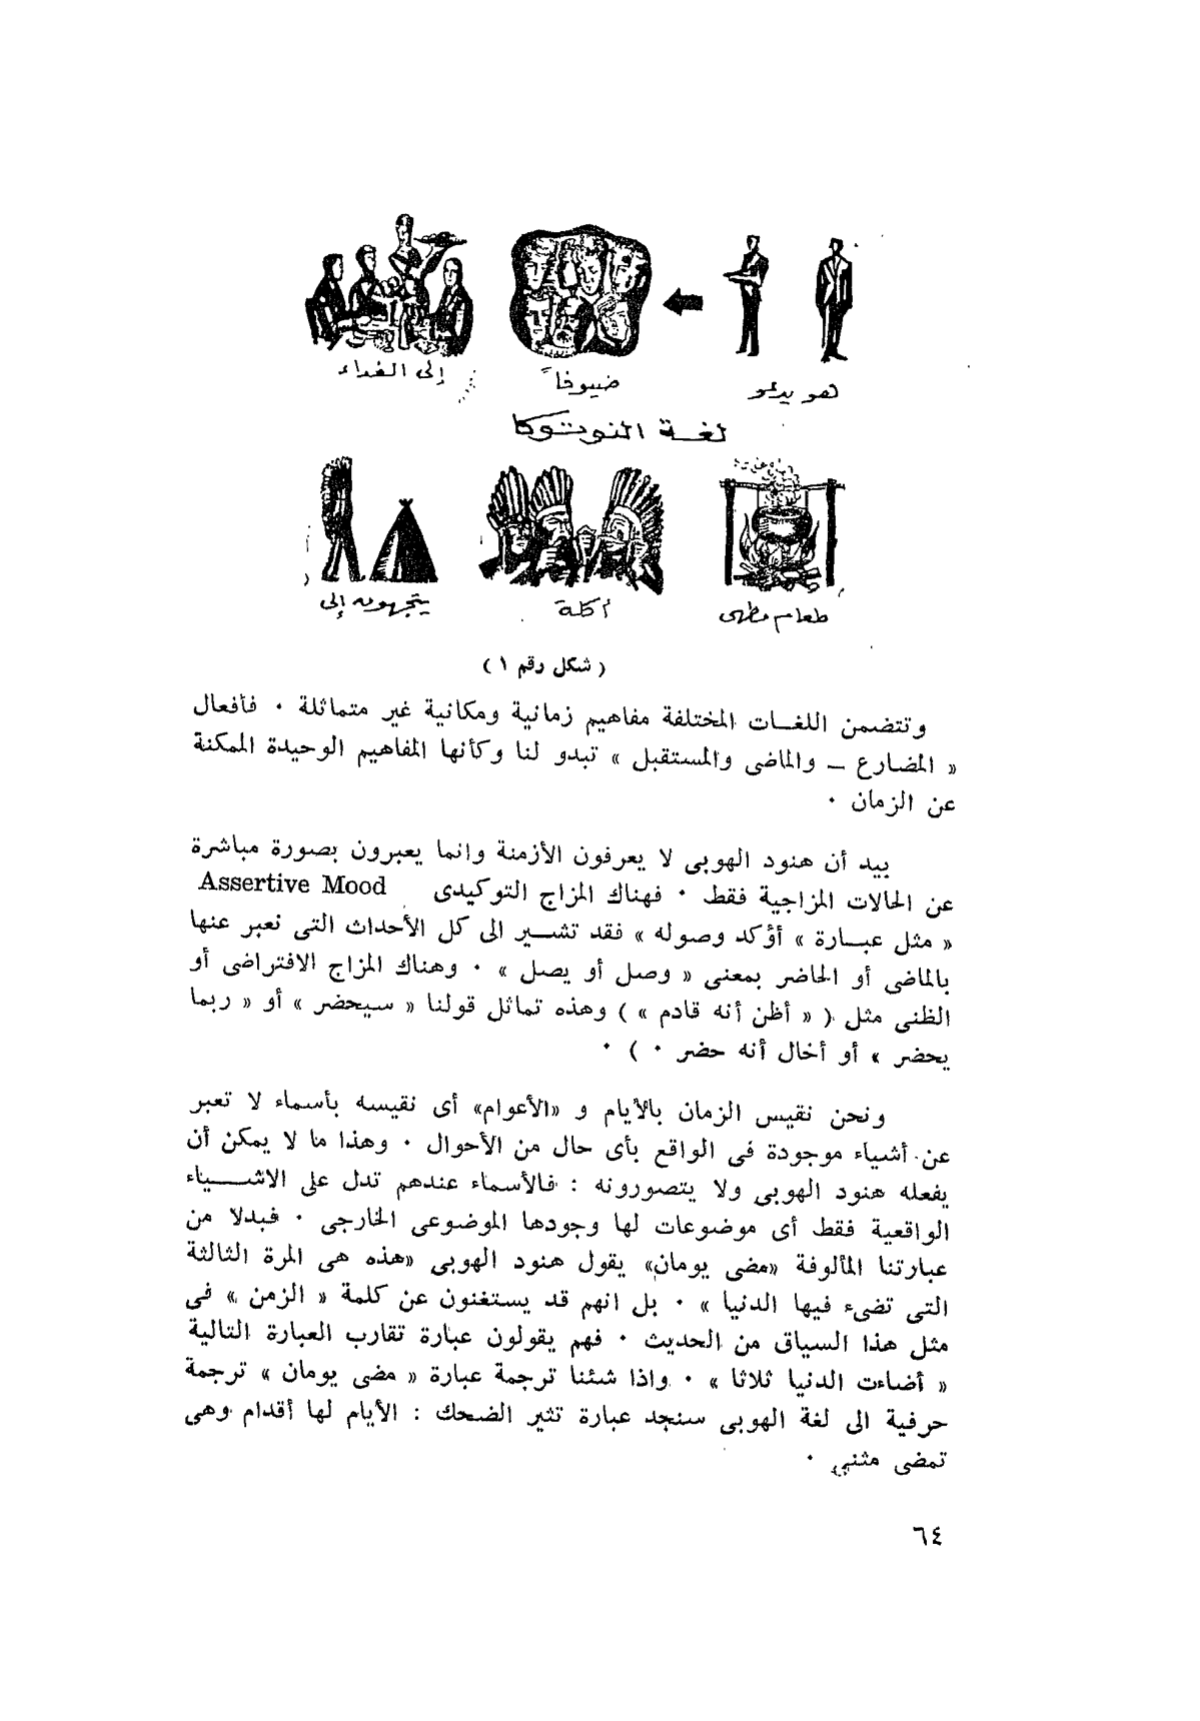 هو يدعو
ضيوفاً
إلى الغداء
لغة النوتوكا
طعام مطهى
أكلة
يتجهون إلى
( شكل رقم ١ )
وتتضمن اللغــات المختلفة مفاهيم زمانية ومكانية غير متماثلة ٠ فأفعال
« المضارع ــ والماضى والمستقبل » تبدو لنا وكأنها المفاهيم الوحيدة الممكنة
عن الزمان ٠
بيد أن هنود الهوبى لا يعرفون الأزمنة وانما يعبرون بصورة مباشرة
عن الحالات المزاجية فقط ٠ فهناك المزاج التوكيدى Assertive Mood
« مثل عبــارة » أؤكد وصوله » فقد تشـــير الى كل الأحداث التى نعبر عنها
بالماضى أو الحاضر بمعنى « وصل أو يصل » ٠ وهناك المزاج الافتراضى أو
الظنى مثل ( « أظن أنه قادم » ) وهذه تماثل قولنا « سيحضر » أو « ربما
يحضر » أو أخال أنه حضر ٠ ) ٠
ونحن نقيس الزمان بالأيام و «الأعوام» أى نقيسه بأسماء لا تعبر
عن أشياء موجودة فى الواقع بأى حال من الأحوال ٠ وهذا ما لا يمكن أن
يفعله هنود الهوبى ولا يتصورونه : فالأسماء عندهم تدل على الاشـــــياء
الواقعية فقط أى موضوعات لها وجودها الموضوعى الخارجى ٠ فبدلا من
عبارتنا المألوفة «مضى يومان» يقول هنود الهوبى «هذه هى المرة الثالثة
التى تضىء فيها الدنيا » ٠ بل انهم قد يستغنون عن كلمة « الزمن » فى
مثل هذا السياق من الحديث ٠ فهم يقولون عبارة تقارب العبارة التالية
« أضاءت الدنيا ثلاثا » ٠ واذا شئنا ترجمة عبارة « مضى يومان » ترجمة
حرفية الى لغة الهوبى سنجد عبارة تثير الضحك : الأيام لها أقدام وهى
تمضى مثنى ٠
٦٤